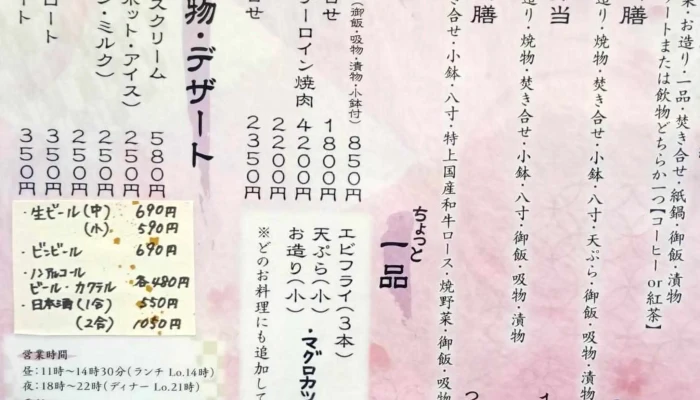 菜・お造り・一品・焚き合せ・紙鍋・御飯・漬物
ートまたは飲物どちらか一つ【コーヒー or 紅茶】
膳
造り・焼物・焚き合せ・小鉢・八寸・天ぷら・御飯・吸物・漬物
当
造り・焼物・焚き合せ・小鉢・八寸・御飯・吸物・漬物
膳
き合せ・小鉢・八寸・特上国産和牛ロース・焼野菜・御飯・吸物
ちょっと
一品
(御飯・吸物・漬物・小鉢付)
850円
合せ 1800円
ーロイン焼肉 4200円
2200円
せ 2350円
エビフライ(3本)
天ぷら(小)
・マグロカツ
お造り(小)
※どのお料理にも追加して
物・デザート
スクリーム 580円
ネット・アイス) 250円
ン・ミルク) 250円
250円
ロート 350円
ート 350円
・生ビール(中) 690円
(小) 590円
・ビンビール 690円
・ノンアルコール
ビール・カクテル 各480円
・日本酒(1合) 550円
(2合) 1050円
営業時間
昼:11時〜14時30分(ランチ Lo.14時)
夜:18時〜22時(ディナー Lo.21時)